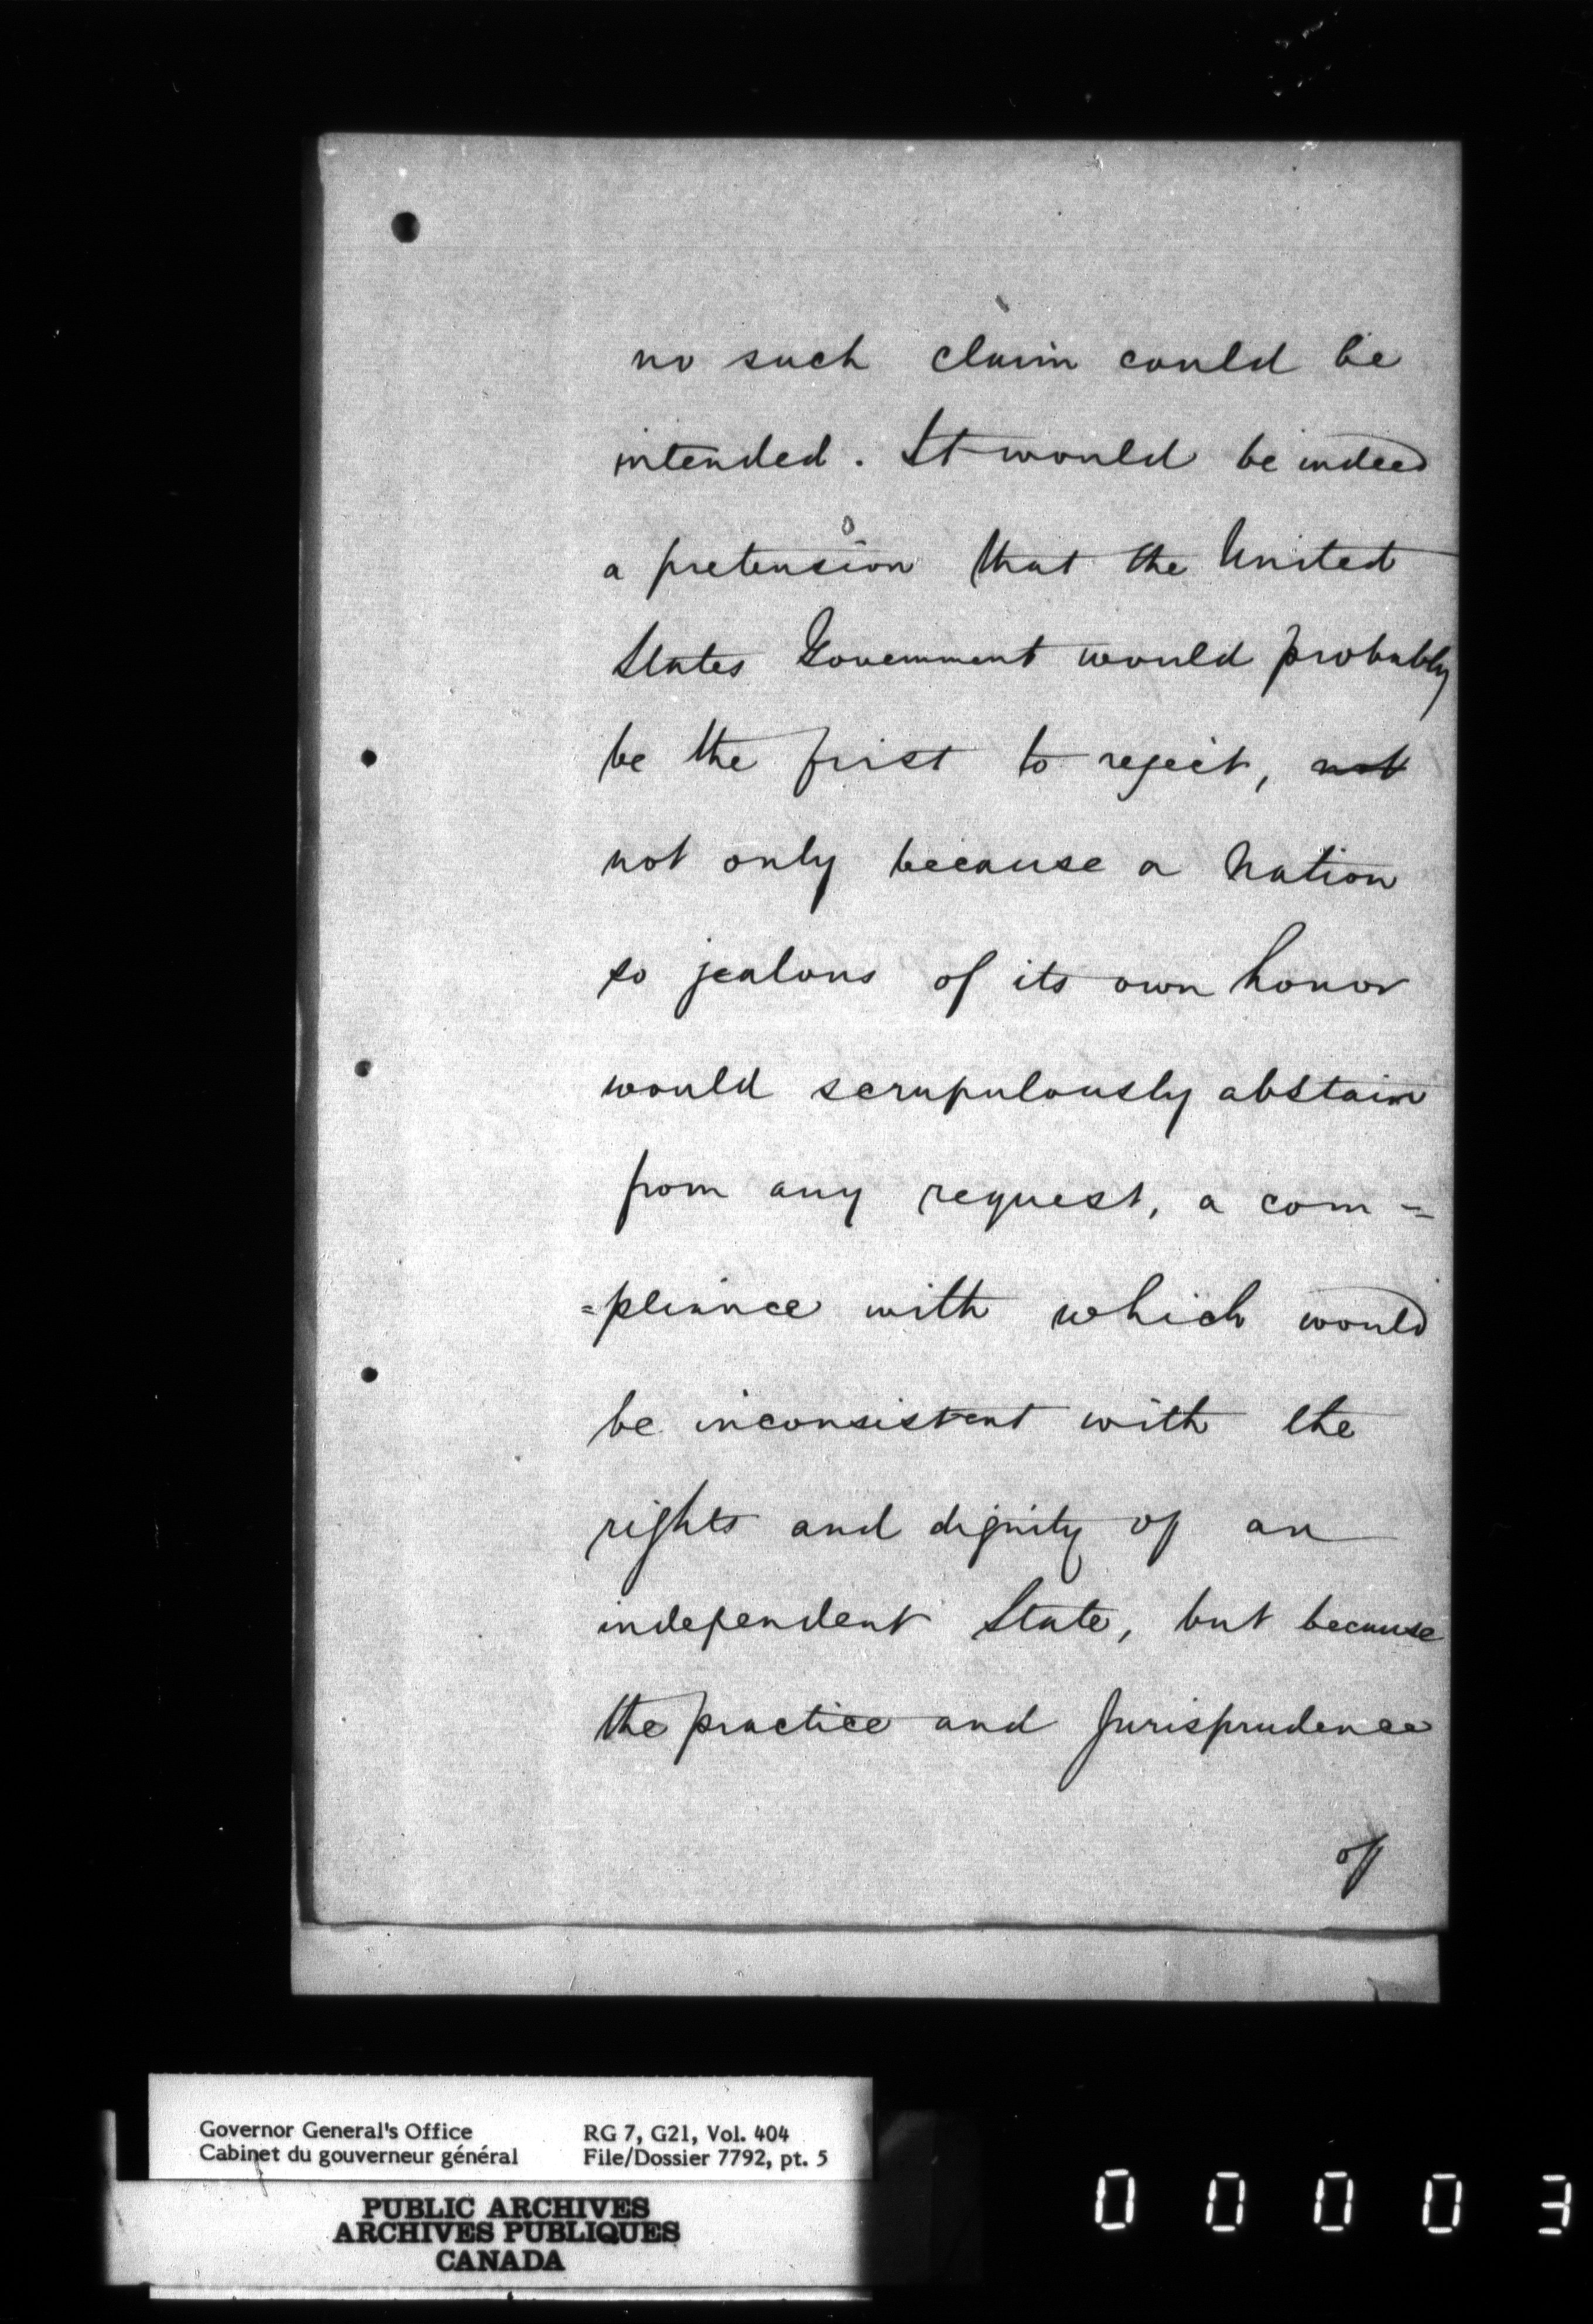 no such claim could be
intended. It would be indeed
a pretension that the United
States Government would probably
be the first to reject, not
not only because a Nation
so jealous of its own honor
would scrupulously abstain
from any request, a com=
=pliance with which would
be inconsistent with the
rights and dignity of an
independent State, but because
the practice and Jurisprudence
of
Governor General's Office
Cabinet du gouverneur général
RG 7, G21, Vol. 404
File/Dossier 7792, pt. 5
PUBLIC ARCHIVES
ARCHIVES PUBLIQUES
CANADA
0 0 0 0 3